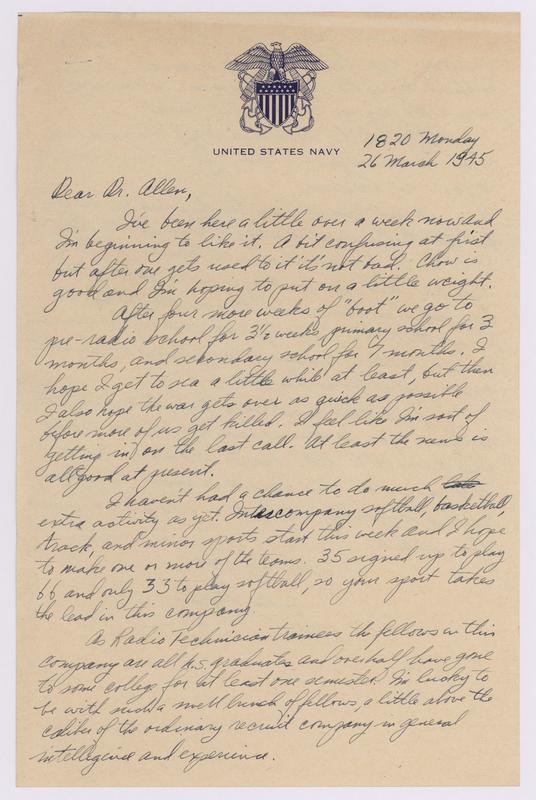 UNITED STATES NAVY
1820 Monday
26 March 1945
Dear Dr. Allen,
I've been here a little over a week now and
I'm beginning to like it. A bit confusing at first
but after one gets used to it it's not bad. Chow is
good and I'm hoping to put on a little weight.
After four more weeks of "boot" we go to
pre-radio school for 3½ weeks, primary school for 3
months, and secondary school for 7 months. I
hope I get to sea a little while at least, but then
I also hope the war gets over as quick as possible
before more of us get killed. I feel like I'm sort of
getting in on the last call. At least the news is
all good at present.
I haven't had a chance to do much
extra activity as yet. Intracompany softball, basketball,
track, and minor sports start this week and I hope
to make one or more of the teams. 35 signed up to play
bb and only 33 to play softball, so your sport takes
the lead in this company.
As Radio Technician trainees the fellows in this
company are all H.S. graduates and over half have gone
to some college for at least one semester. I'm lucky to
be with such a swell bunch of fellows, a little above the
caliber of the ordinary recruit company in general
intelligence and experience.